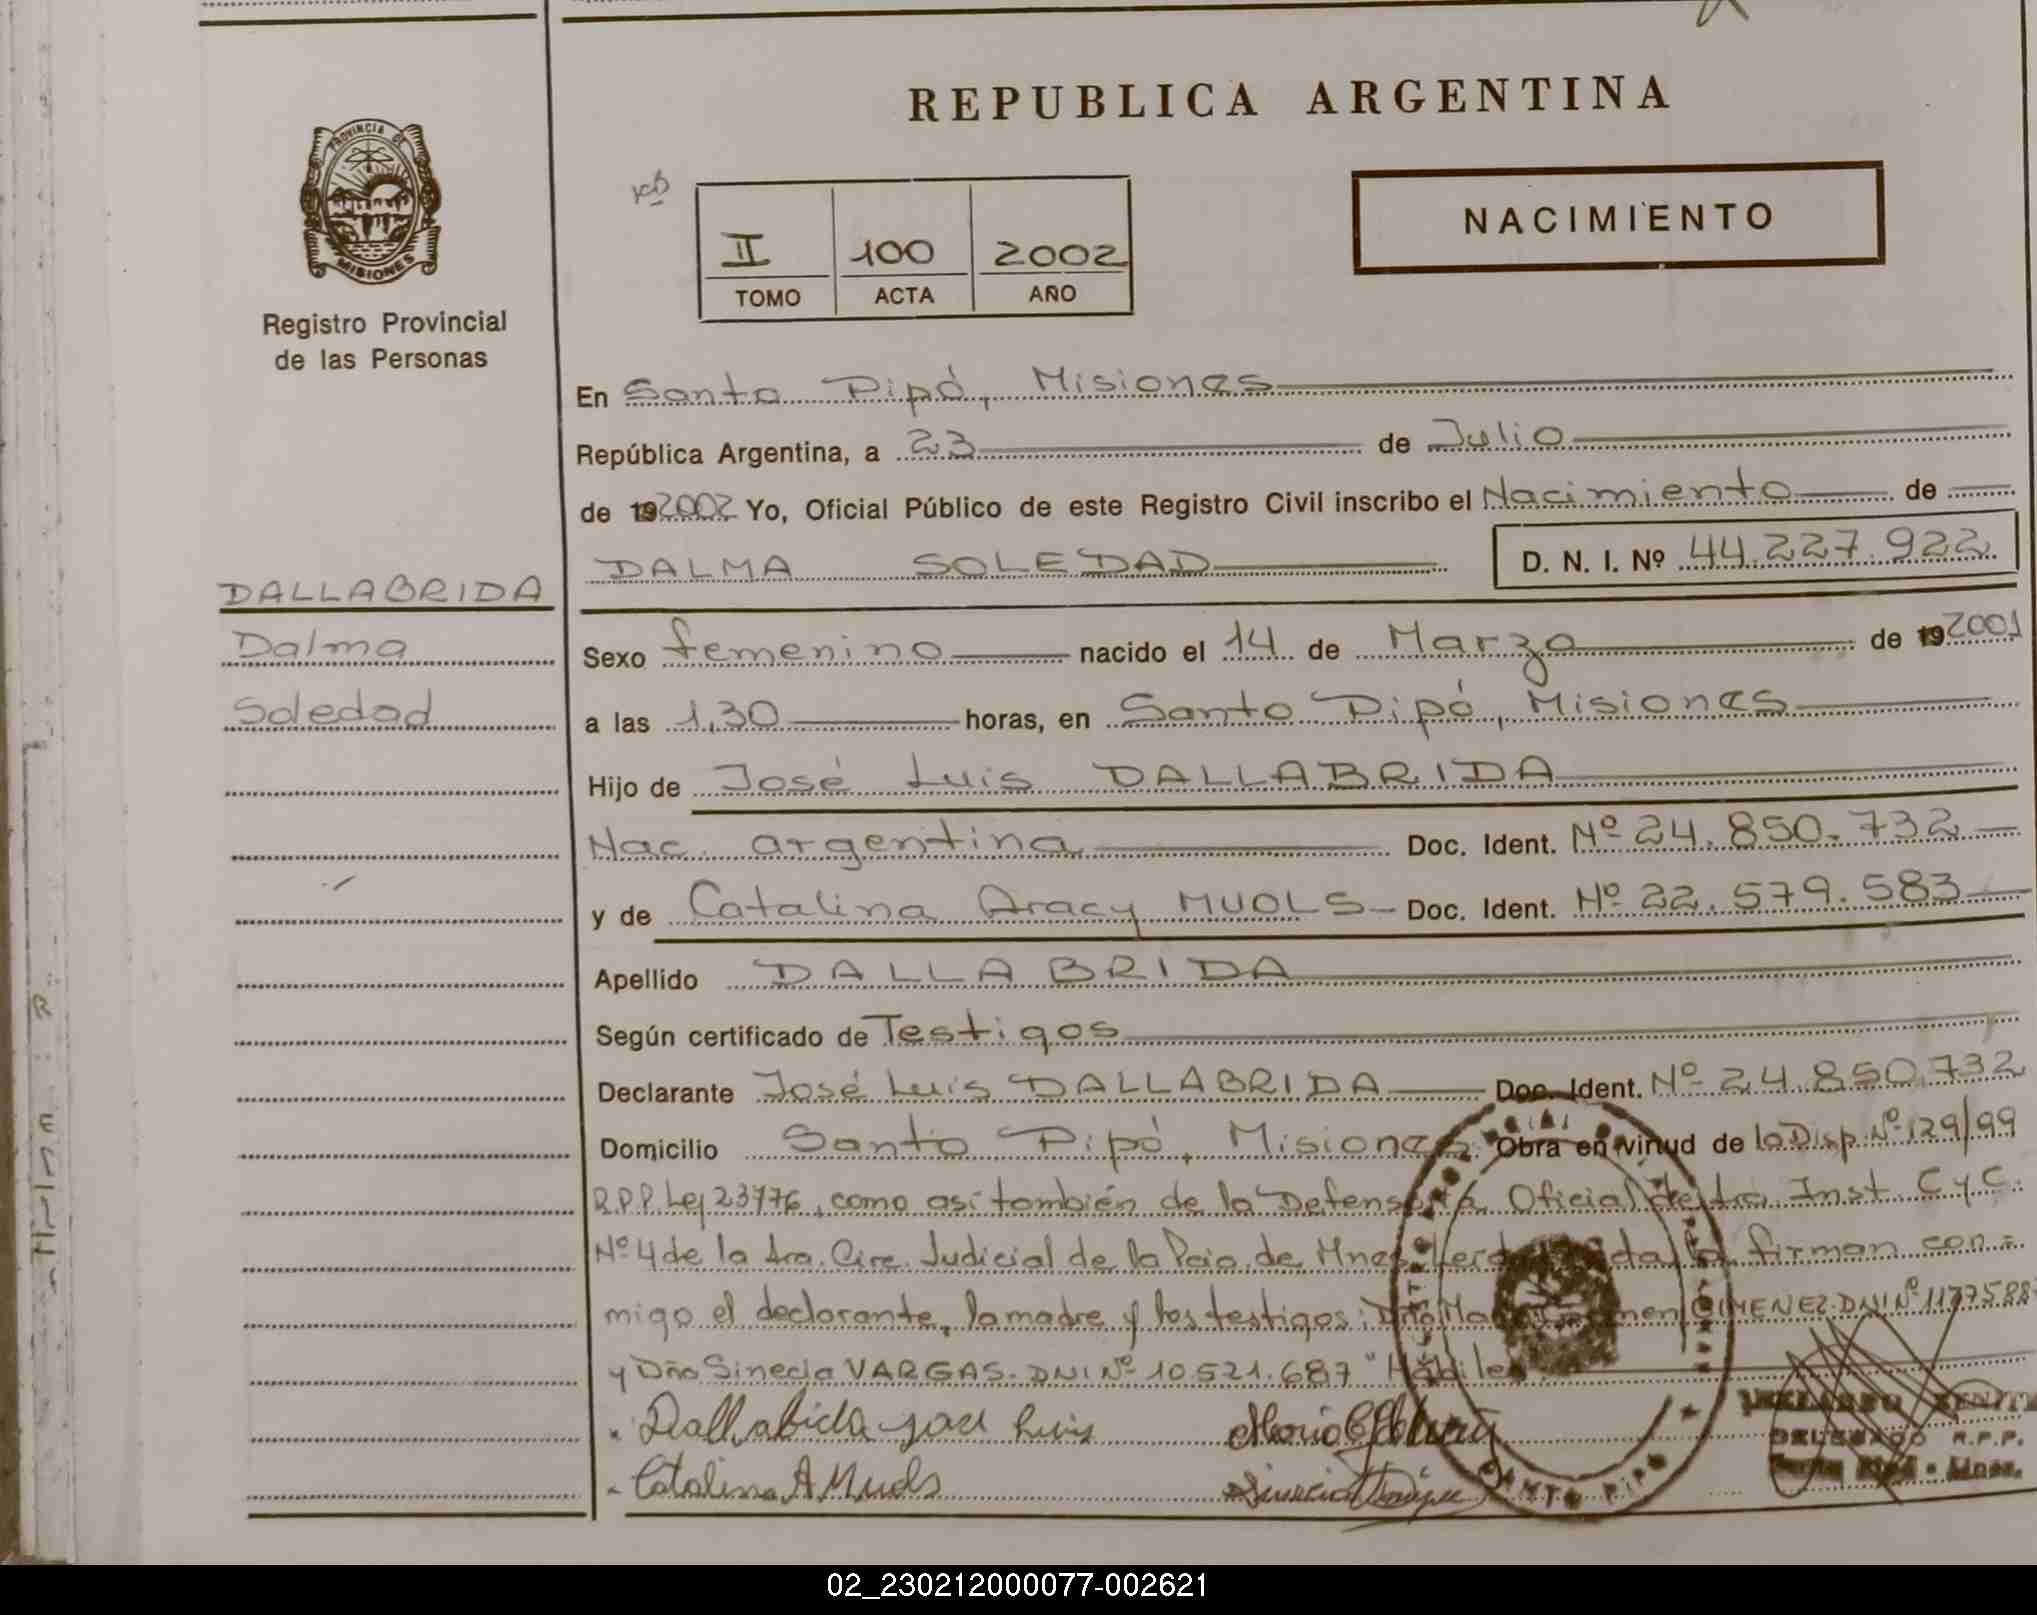 REPUBLICA ARGENTINA
PROVINCIA DE
MISIONES
Registro Provincial
de las Personas
NACIMIENTO
II 100 2002
TOMO ACTA AÑO
En Santo Pipó, Misiones
República Argentina, a 23 de Julio
de 192002 Yo, Oficial Público de este Registro Civil inscribo el Nacimiento de
DALMA SOLEDAD D. N. I. Nº 44.227.922
DALLABRIDA
Dalma
Soledad
Sexo femenino nacido el 14 de Marzo de 192001
a las 1,30 horas, en Santo Pipó, Misiones
Hijo de José Luis DALLABRIDA
Nac. argentina Doc. Ident. Nº 24.850.732
y de Catalina Aracy MUOLS Doc. Ident. Nº 22.579.583
Apellido DALLABRIDA
Según certificado de Testigos
Declarante José Luis DALLABRIDA Doc. Ident. Nº 24.850.732
Domicilio Santo Pipó, Misiones. Obra en virtud de la Disp. Nº 129/99
R.P.P. Ley 23776, como así también de la Defensoría Oficial de 1ra. Inst. C y C.
Nº 4 de la 1ra. Circ. Judicial de la Pcia. de Mnes. Leída la firman con=
migo el declarante, la madre y los testigos: Dña GIMENEZ DNI Nº
y Dña Sinecia VARGAS. DNI Nº 10.521.687 "Hábiles
Dallabrida José Luis
Catalina A Muols
SANTO PIPO
DELEGADO R.P.P.
Santo Pipó - Mnes.
02_230212000077-002621